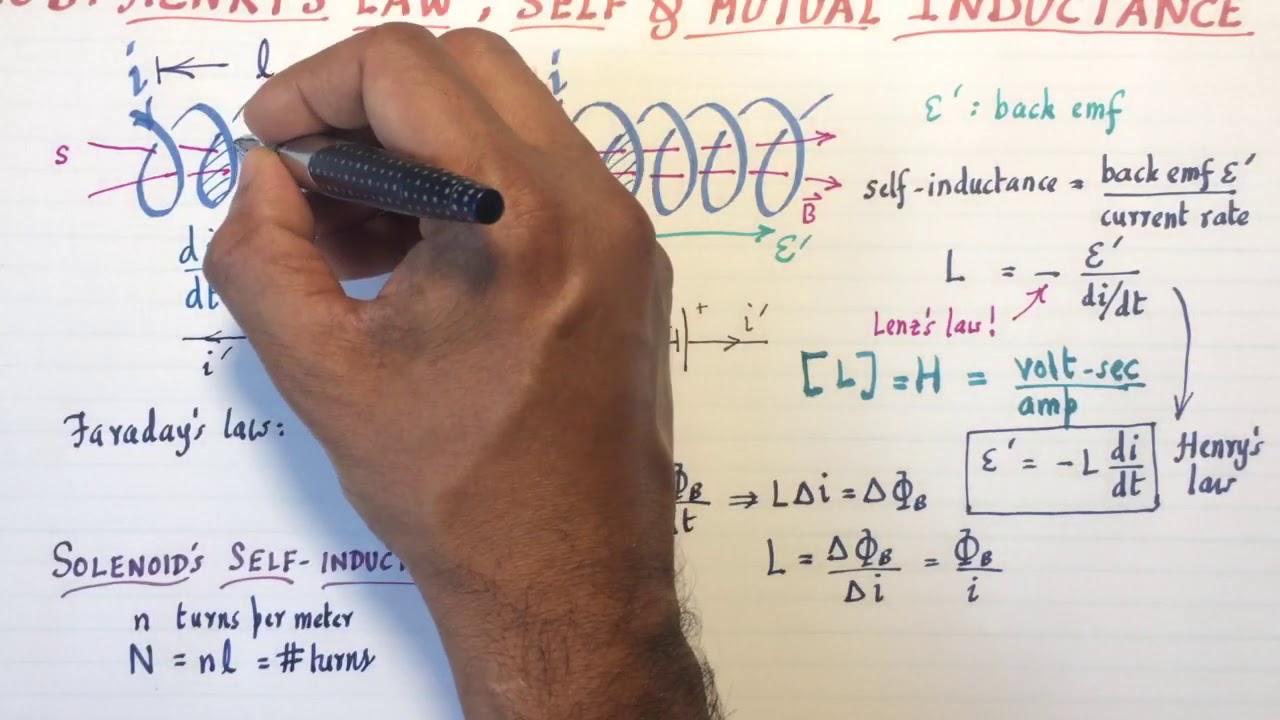 HENRY'S LAW, SELF & MUTUAL INDUCTANCE
i l i
S
B⃗
ε'
di
dt
i'
+ i'
ε' : back emf
self-inductance = back emf ε' / current rate
L = - ε' / di/dt
Lenz's law!
[L] = H = volt-sec / amp
ε' = -L di/dt
Henry's law
Faraday's law:
Φ_B ⇒ LΔi = ΔΦ_B
L = ΔΦ_B / Δi = Φ_B / i
SOLENOID'S SELF-
n turns per meter
N = nl = # turns